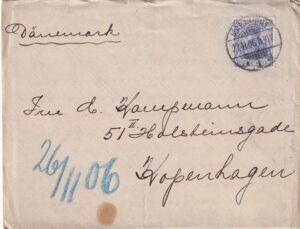 Dänemark
Frue d. Kampmann
51 II Holsteinsgade
Kopenhagen
26/11 06